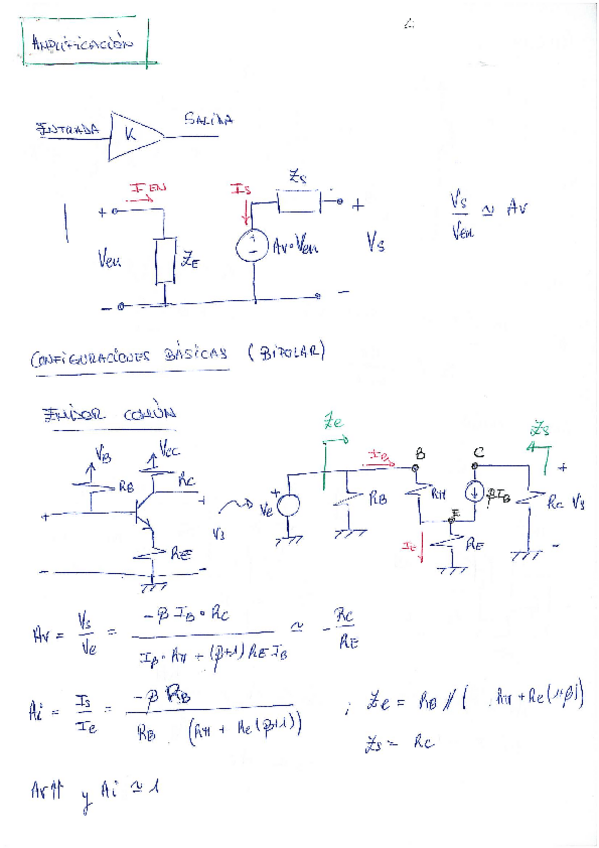 AMPLIFICACIÓN
ENTRADA K SALIDA
I EN IS ZS
+ + +
Ven ZE Av·Ven VS
- - -
VS/Ven ≃ AV
CONFIGURACIONES BÁSICAS (BIPOLAR)
EMISOR COMÚN
VB VCC RB RC
+ + RE VS
Ze IB B C ZS
+ Ve RB Rπ βIB RC VS +
E IE RE -
Av = VS/Ve = -β IB · RC / IB · Rπ + (β+1) RE IB ≃ - RC/RE
Ai = IS/Ie = -β RB / RB (Rπ + Re(β+1)) ; Ze = RB // ( Rπ + Re(1+β)
ZS = RC
Av↑↑ y Ai ≃ 1